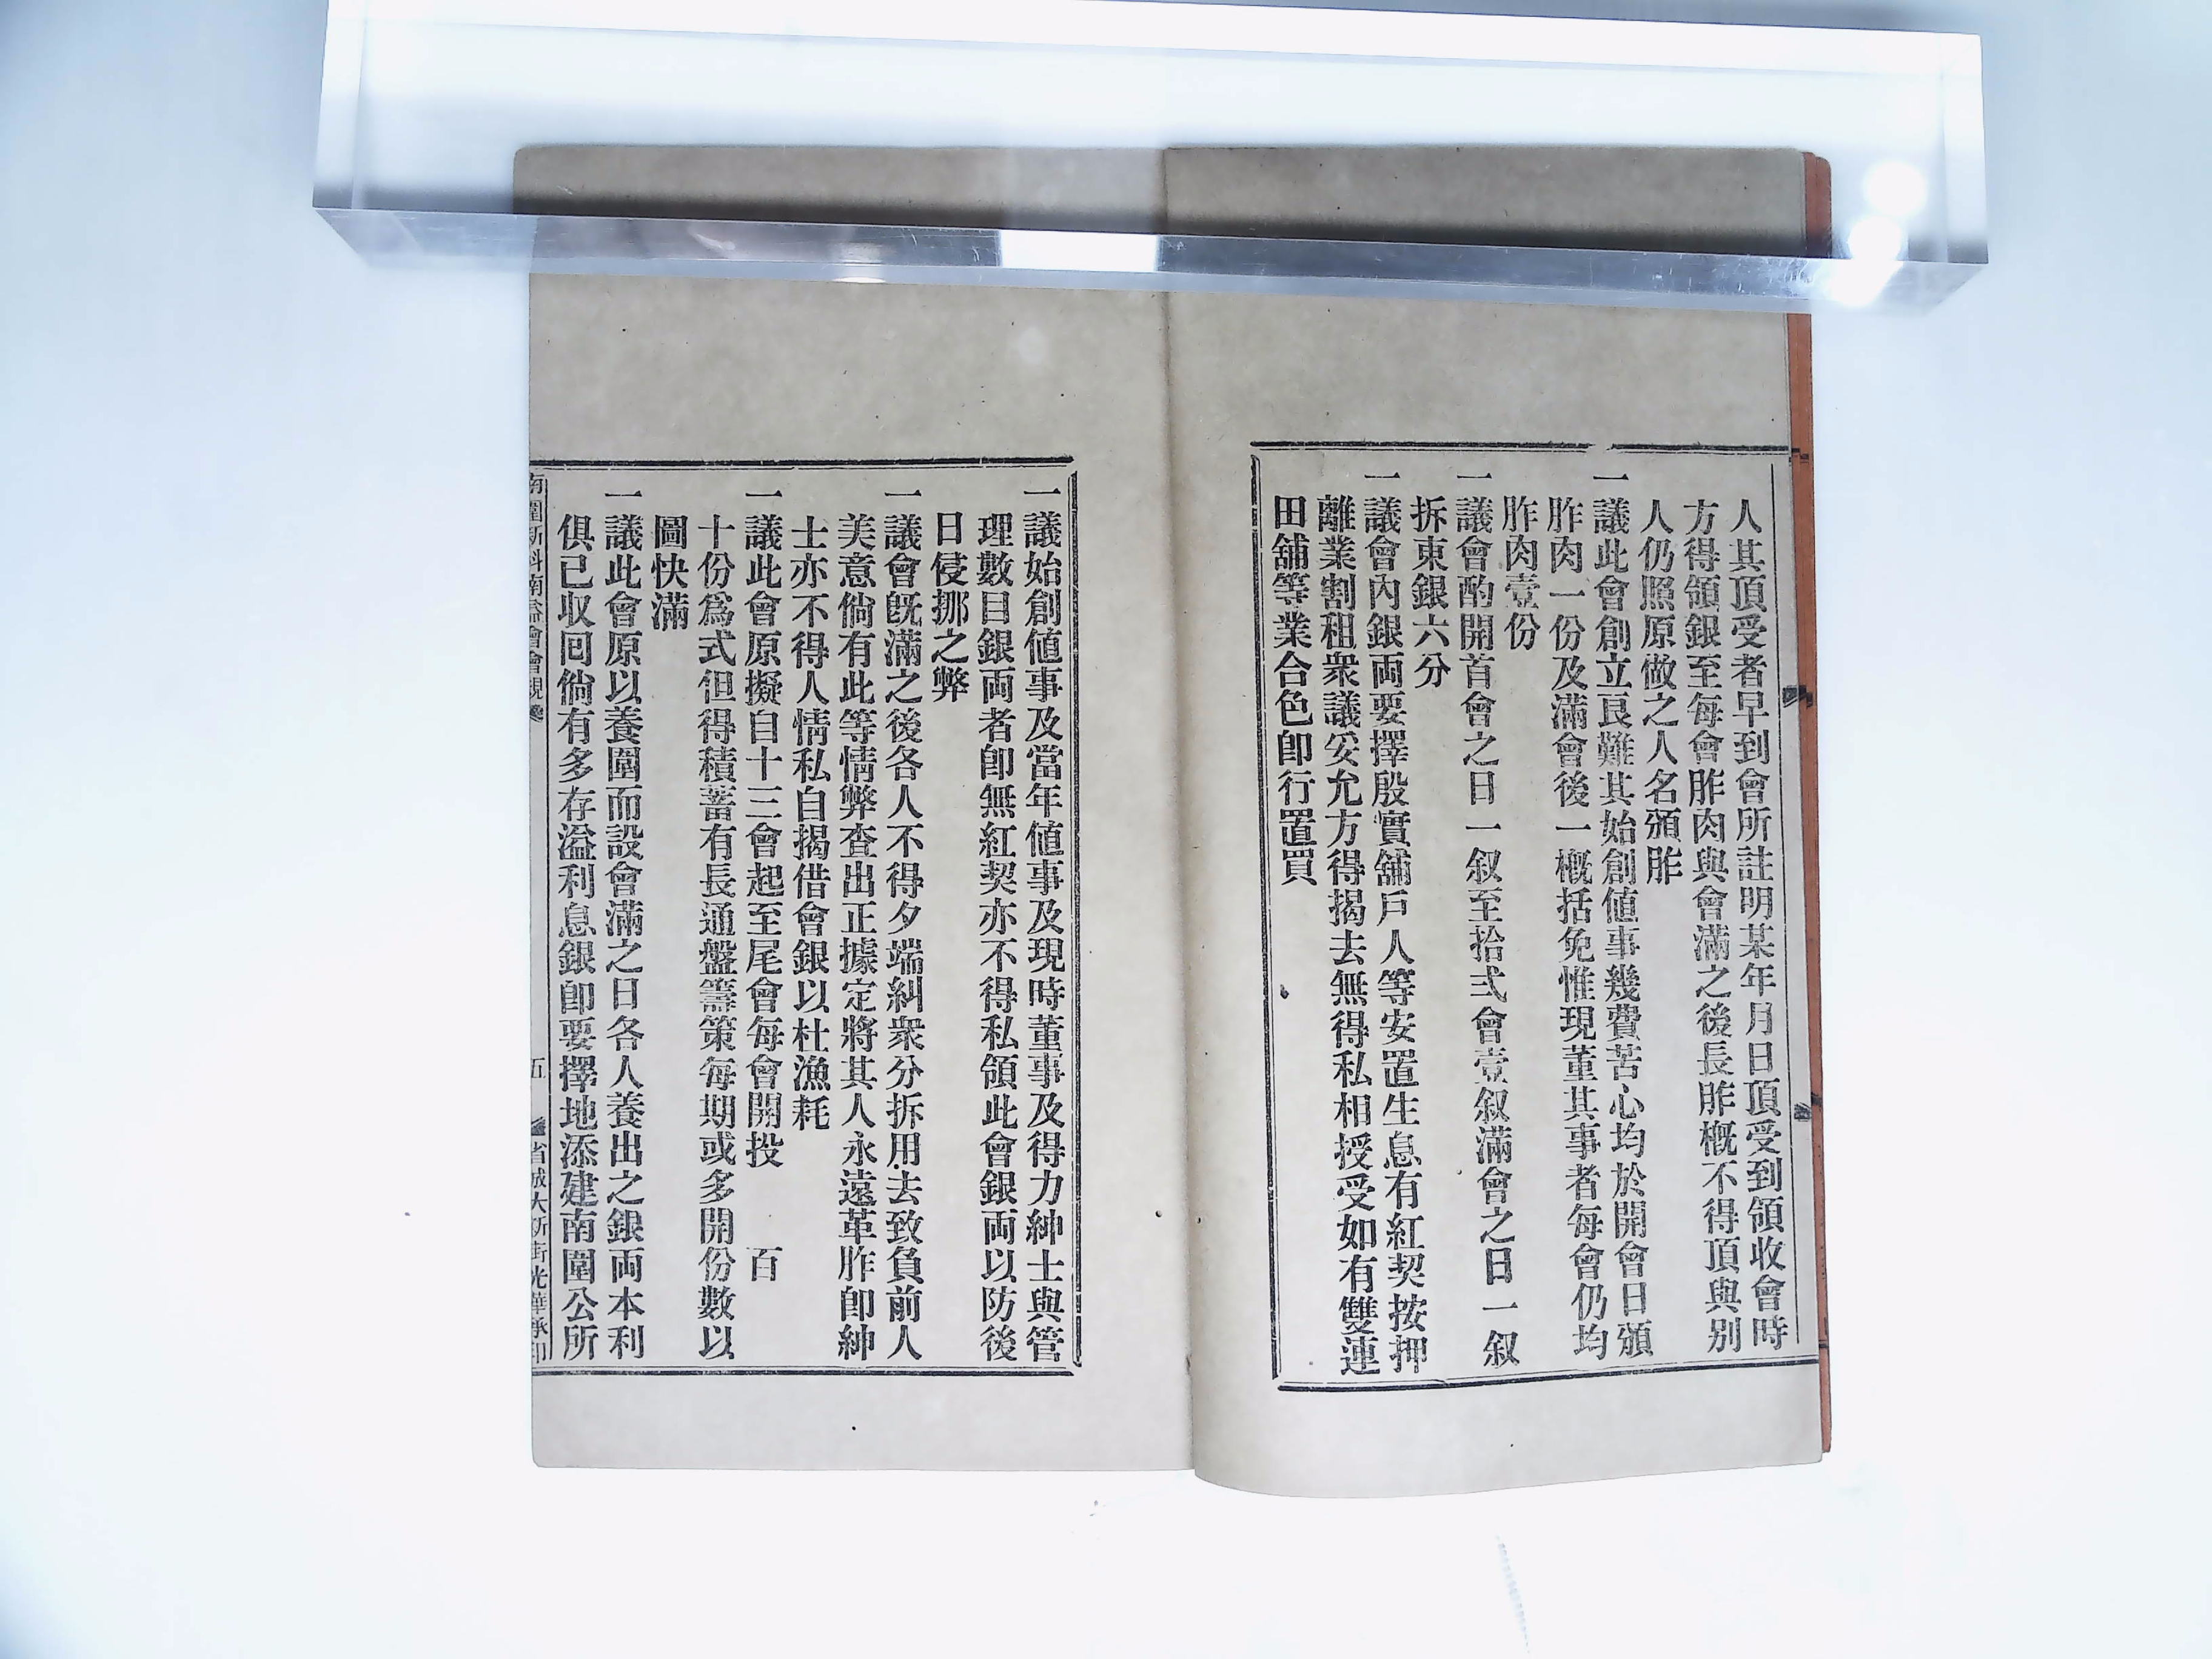 人其頂受者早到會所註明某年月日頂受到領收會時
方得領銀至每會胙肉與會滿之後長胙概不得頂與別
人仍照原做之人名頒胙
一議此會創立艮難其始創値事幾費苦心均於開會日頒
胙肉一份及滿會後一概括免惟現董其事者每會仍均
胙肉壹份
一議會酌開首會之日一叙至拾弍會壹叙滿會之日一叙
拆東銀六分
一議會內銀両要擇殷實舖戶人等安置生息有紅契按押
離業割租衆議妥允方得揭去無得私相授受如有雙連
田舖等業合色卽行置買
一議始創値事及當年値事及現時董事及得力紳士與管
理數目銀両者卽無紅契亦不得私領此會銀両以防後
日侵挪之弊
一議會旣滿之後各人不得夕端糾衆分拆用去致負前人
美意倘有此等情弊查出正據定將其人永遠革胙卽紳
士亦不得人情私自揭借會銀以杜漁耗
一議此會原擬自十三會起至尾會每會開投 百
十份爲式但得積蓄有長通盤籌策每期或多開份數以
圖快滿
一議此會原以養圍而設會滿之日各人養出之銀両本利
俱已収回倘有多存溢利息銀卽要擇地添建南圍公所
南圍新科南溢會會規
五
省城大新街光華承印